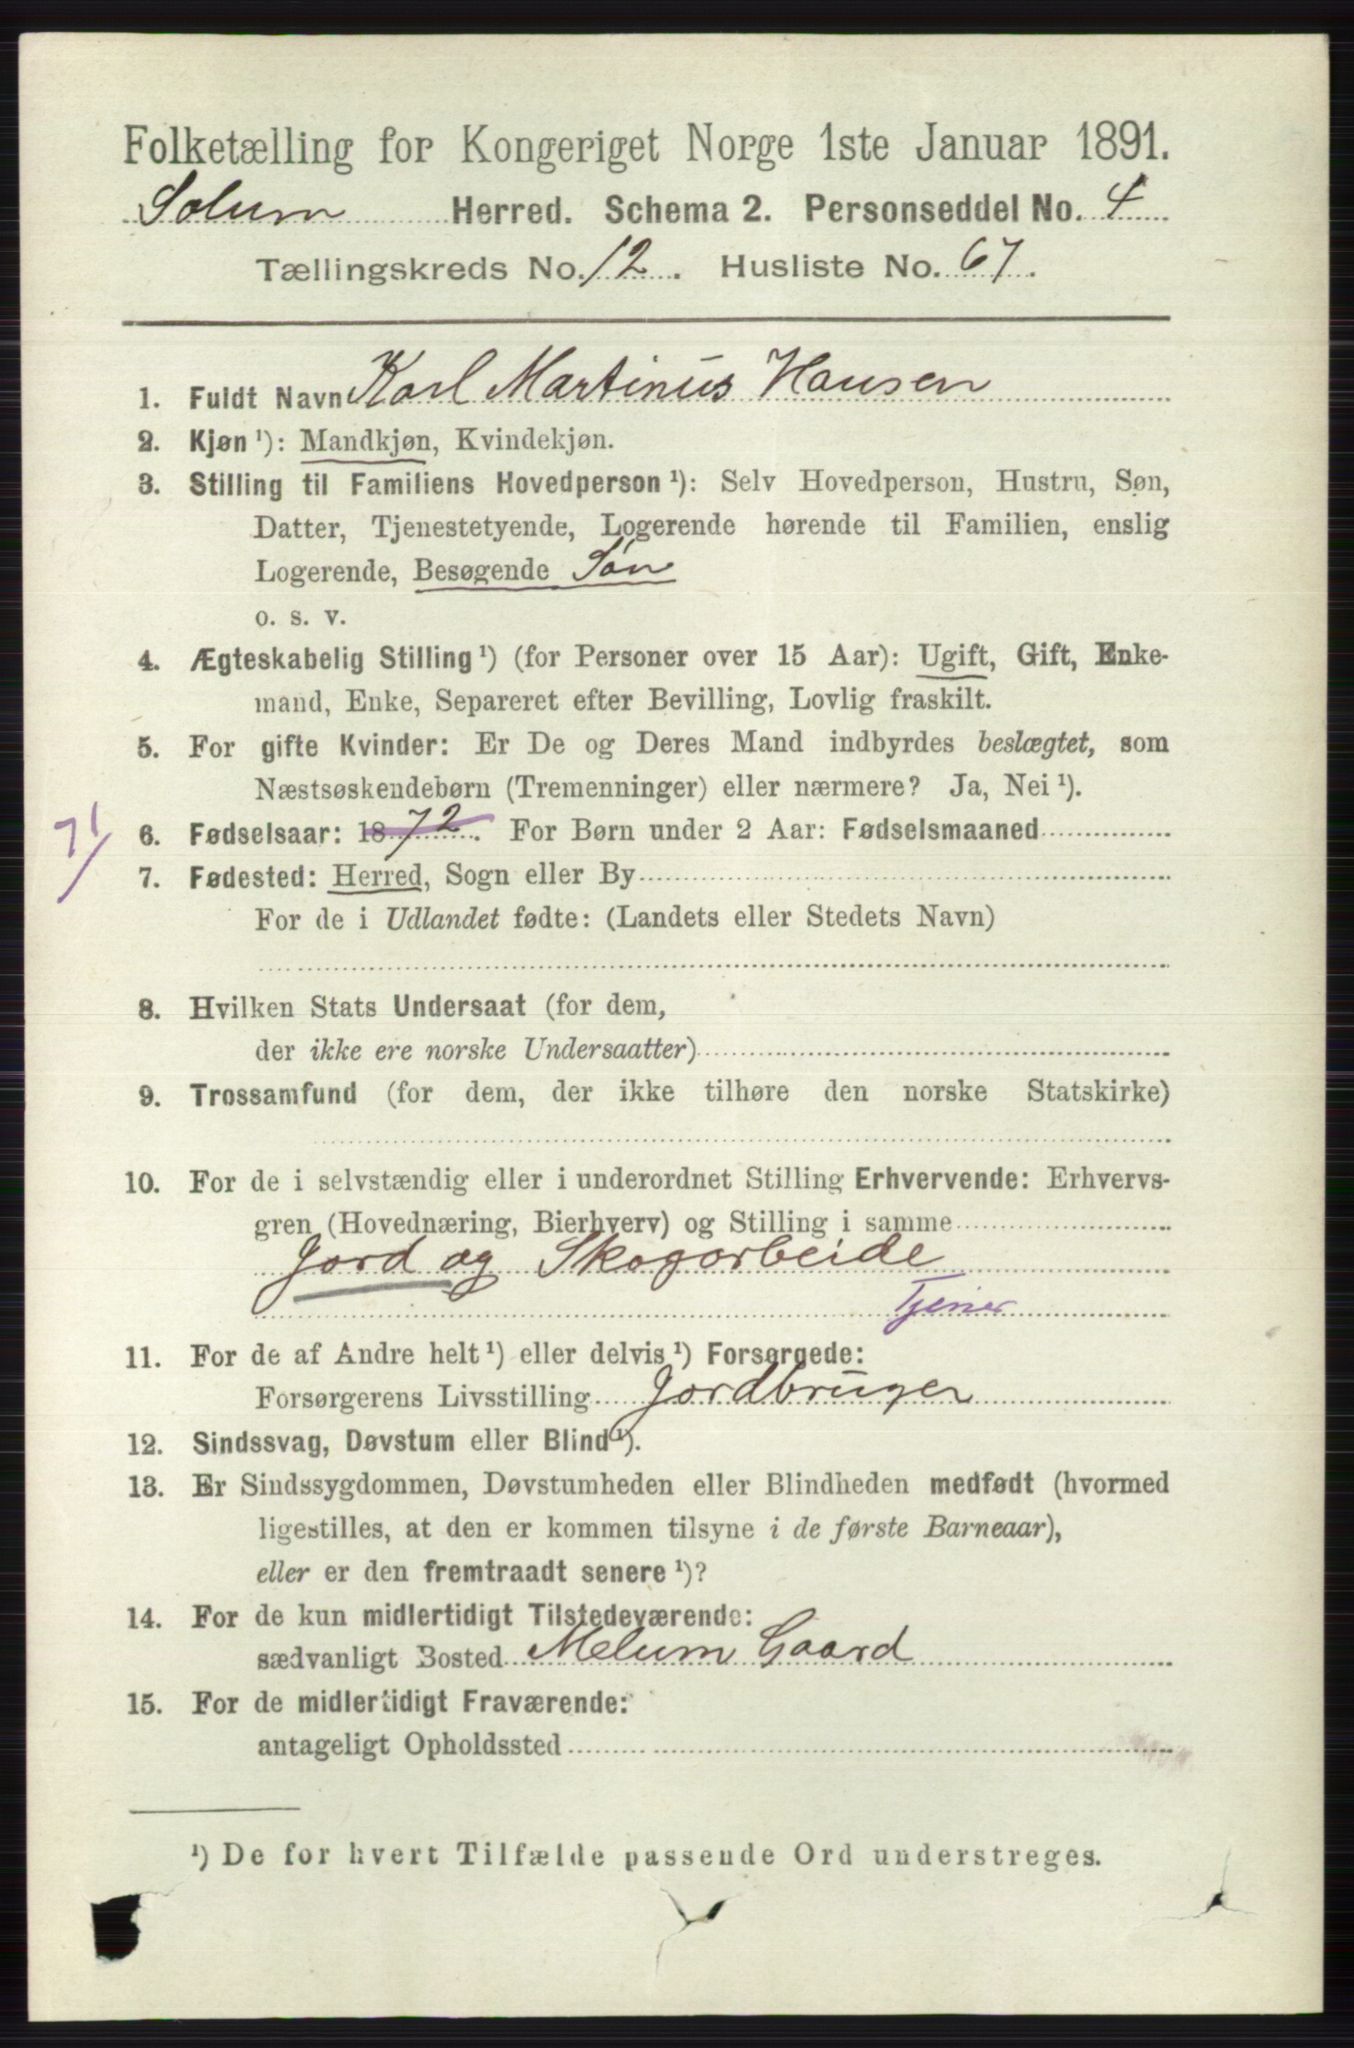 Folketælling for Kongeriget Norge 1ste Januar 1891.
Solum Herred. Schema 2. Personseddel No. 4
Tællingskreds No. 12. Husliste No. 67.
1. Fuldt Navn Karl Martinus Hansen
2. Kjøn ¹): Mandkjøn, Kvindekjøn.
3. Stilling til Familiens Hovedperson ¹): Selv Hovedperson, Hustru, Søn,
Datter, Tjenestetyende, Logerende hørende til Familien, enslig
Logerende, Besøgende Søn
o. s. v.
4. Ægteskabelig Stilling ¹) (for Personer over 15 Aar): Ugift, Gift, Enke-
mand, Enke, Separeret efter Bevilling, Lovlig fraskilt.
5. For gifte Kvinder: Er De og Deres Mand indbyrdes beslægtet, som
Næstsøskendebørn (Tremenninger) eller nærmere? Ja, Nei ¹).
71 6. Fødselsaar: 1872. For Børn under 2 Aar: Fødselsmaaned
7. Fødested: Herred, Sogn eller By
For de i Udlandet fødte: (Landets eller Stedets Navn)
8. Hvilken Stats Undersaat (for dem,
der ikke ere norske Undersaatter)
9. Trossamfund (for dem, der ikke tilhøre den norske Statskirke)
10. For de i selvstændig eller i underordnet Stilling Erhvervende: Erhvervs-
gren (Hovednæring, Bierhverv) og Stilling i samme
Jord og Skogarbeide
Tjener
11. For de af Andre helt ¹) eller delvis ¹) Forsørgede:
Forsørgerens Livsstilling Jordbruger
12. Sindssvag, Døvstum eller Blind ¹).
13. Er Sindssygdommen, Døvstumheden eller Blindheden medfødt (hvormed
ligestilles, at den er kommen tilsyne i de første Barneaar),
eller er den fremtraadt senere ¹)?
14. For de kun midlertidigt Tilstedeværende:
sædvanligt Bosted Melum Gaard
15. For de midlertidigt Fraværende:
antageligt Opholdssted
¹) De for hvert Tilfælde passende Ord understreges.